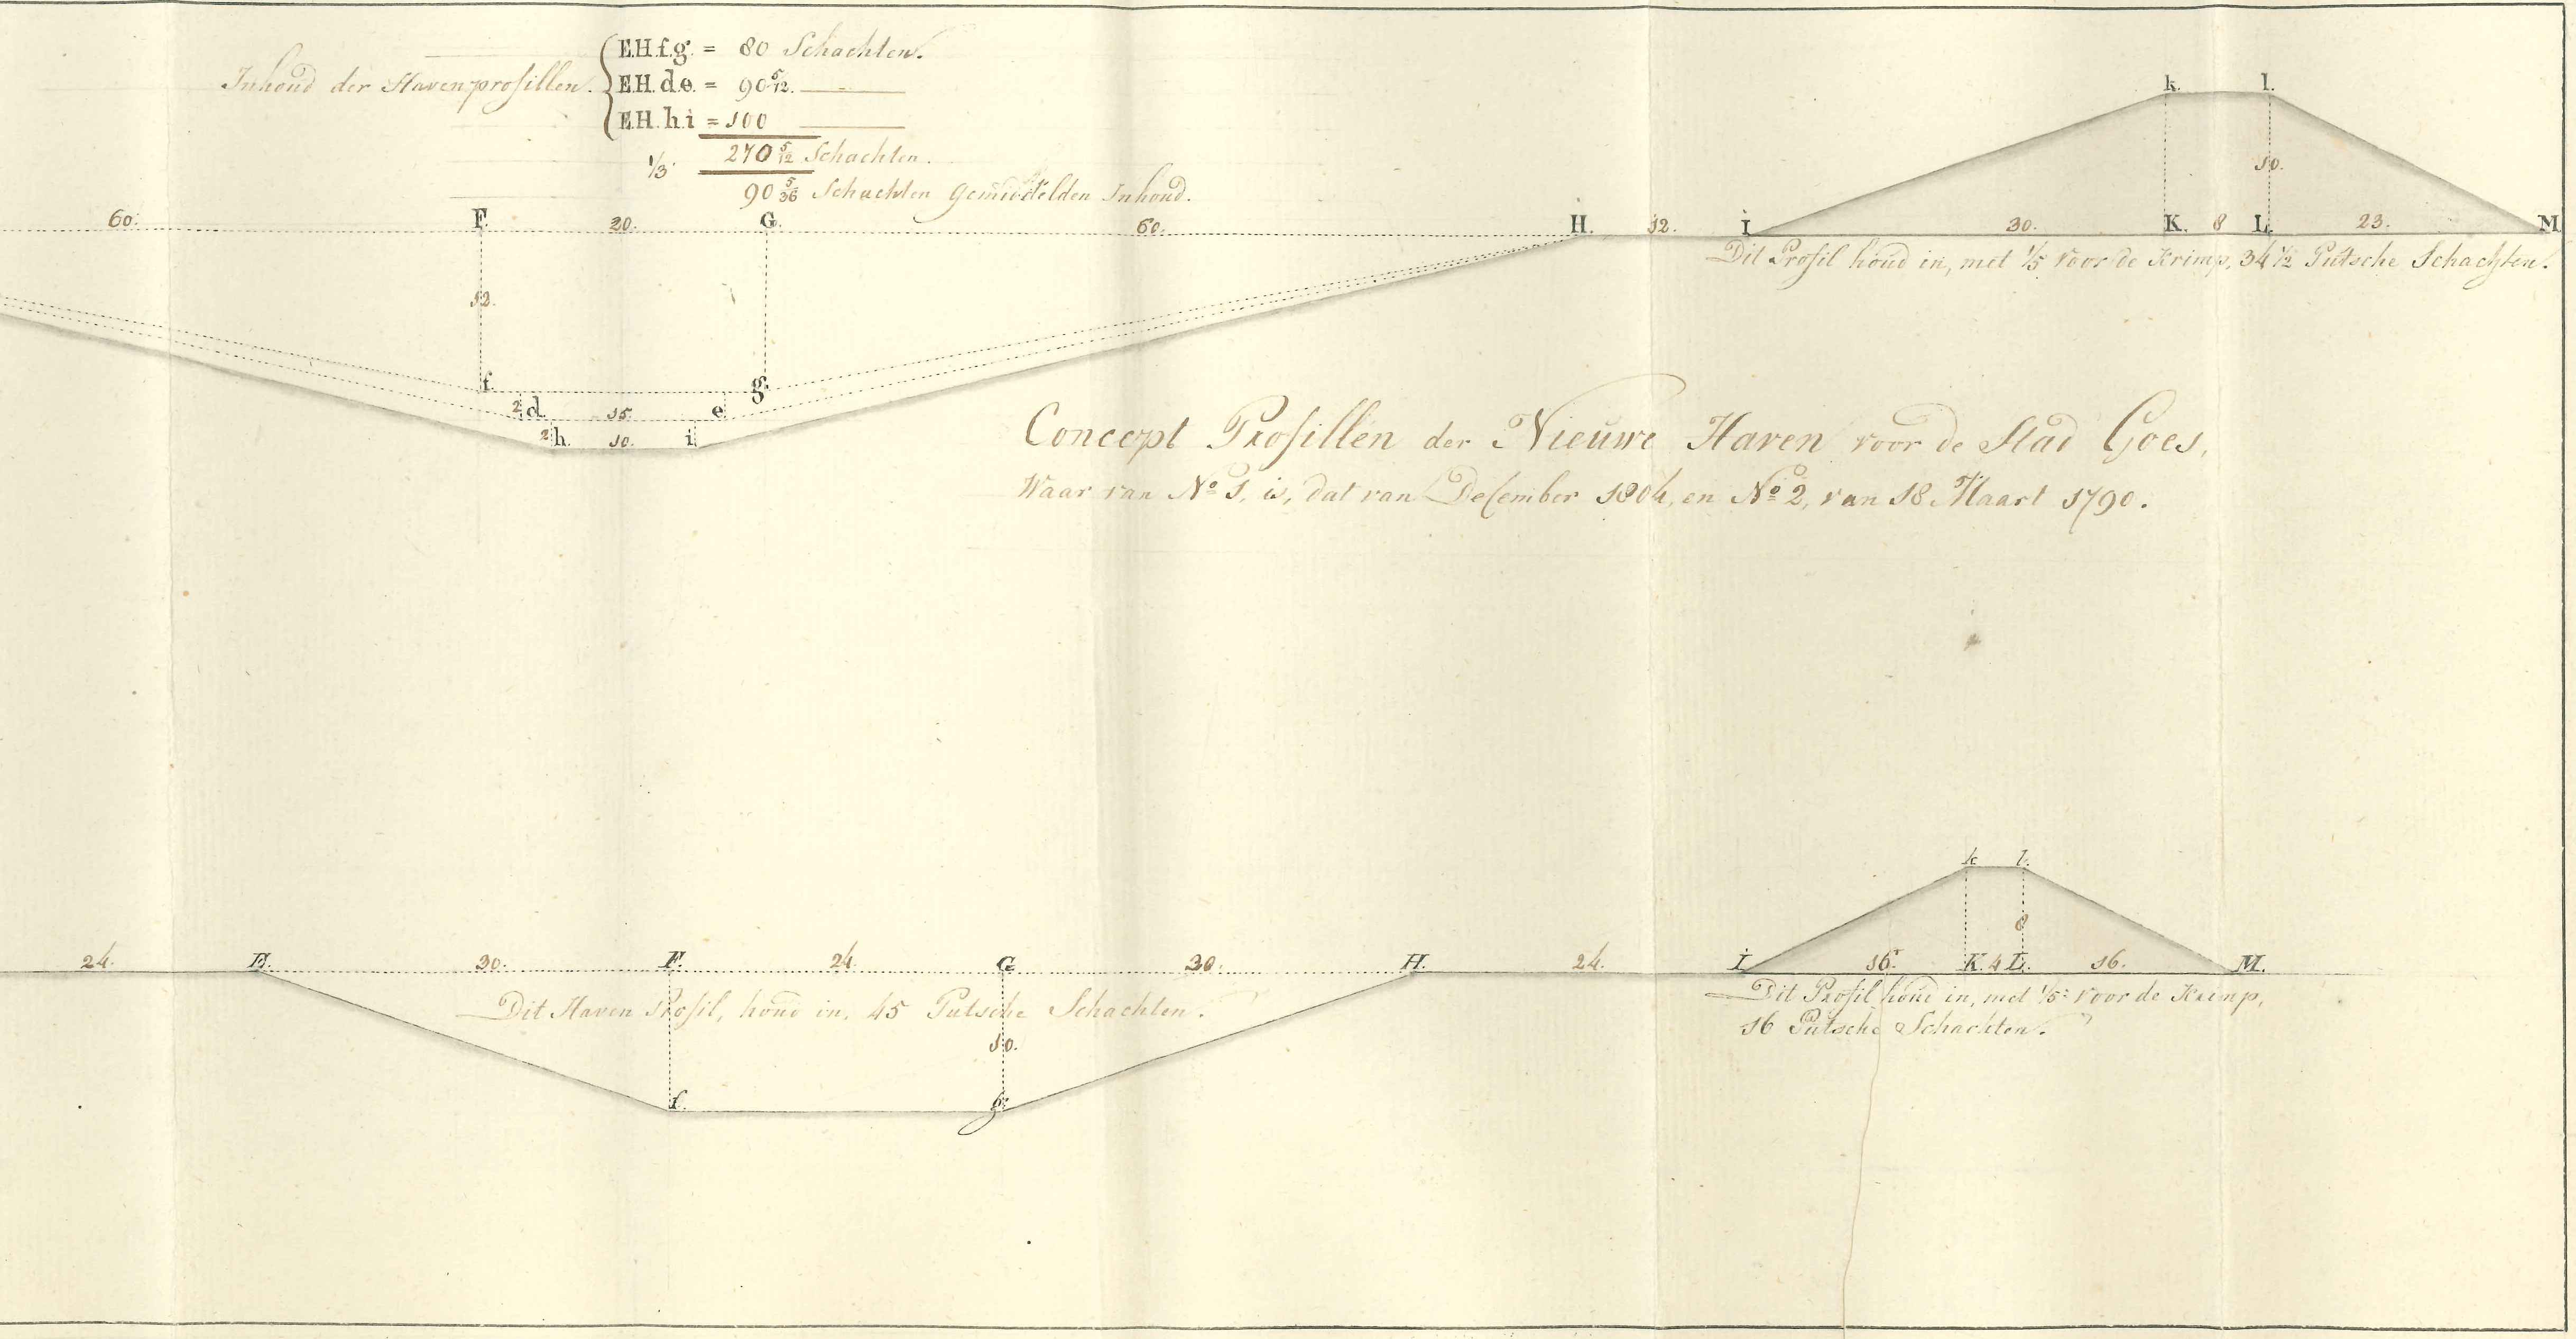 Inhoud der Havenprofillen.
E.H.f.g. = 80 Schachten.
E.H.d.e. = 90 5/12.
E.H.h.i = 100
270 5/12 Schachten.
1/3.
90 5/36 Schachten Gemiddelden Inhoud.
k. l.
10.
60. F. 20. G. 60. H. 12. I 30. K. 8 L. 23. M
Dit Profil houd in, met 1/5 voor de Krimp, 34 1/2 Putsche Schachten.
12.
f. g.
2. d. 15. e
2 h. 10. i.
Concept Profillen der Nieuwe Haven voor de Stad Goes,
Waar van No 1, is, dat van December 1804, en No 2, van 18 Maart 1790.
k l.
8
24. E. 30. F. 24. G 30. H. 24. I 16. K. 4 L. 16. M.
Dit Haven Profil, houd in, 45 Putsche Schachten.
Dit Profil houd in, met 1/5 voor de Krimp,
16 Putsche Schachten.
10.
f. g.